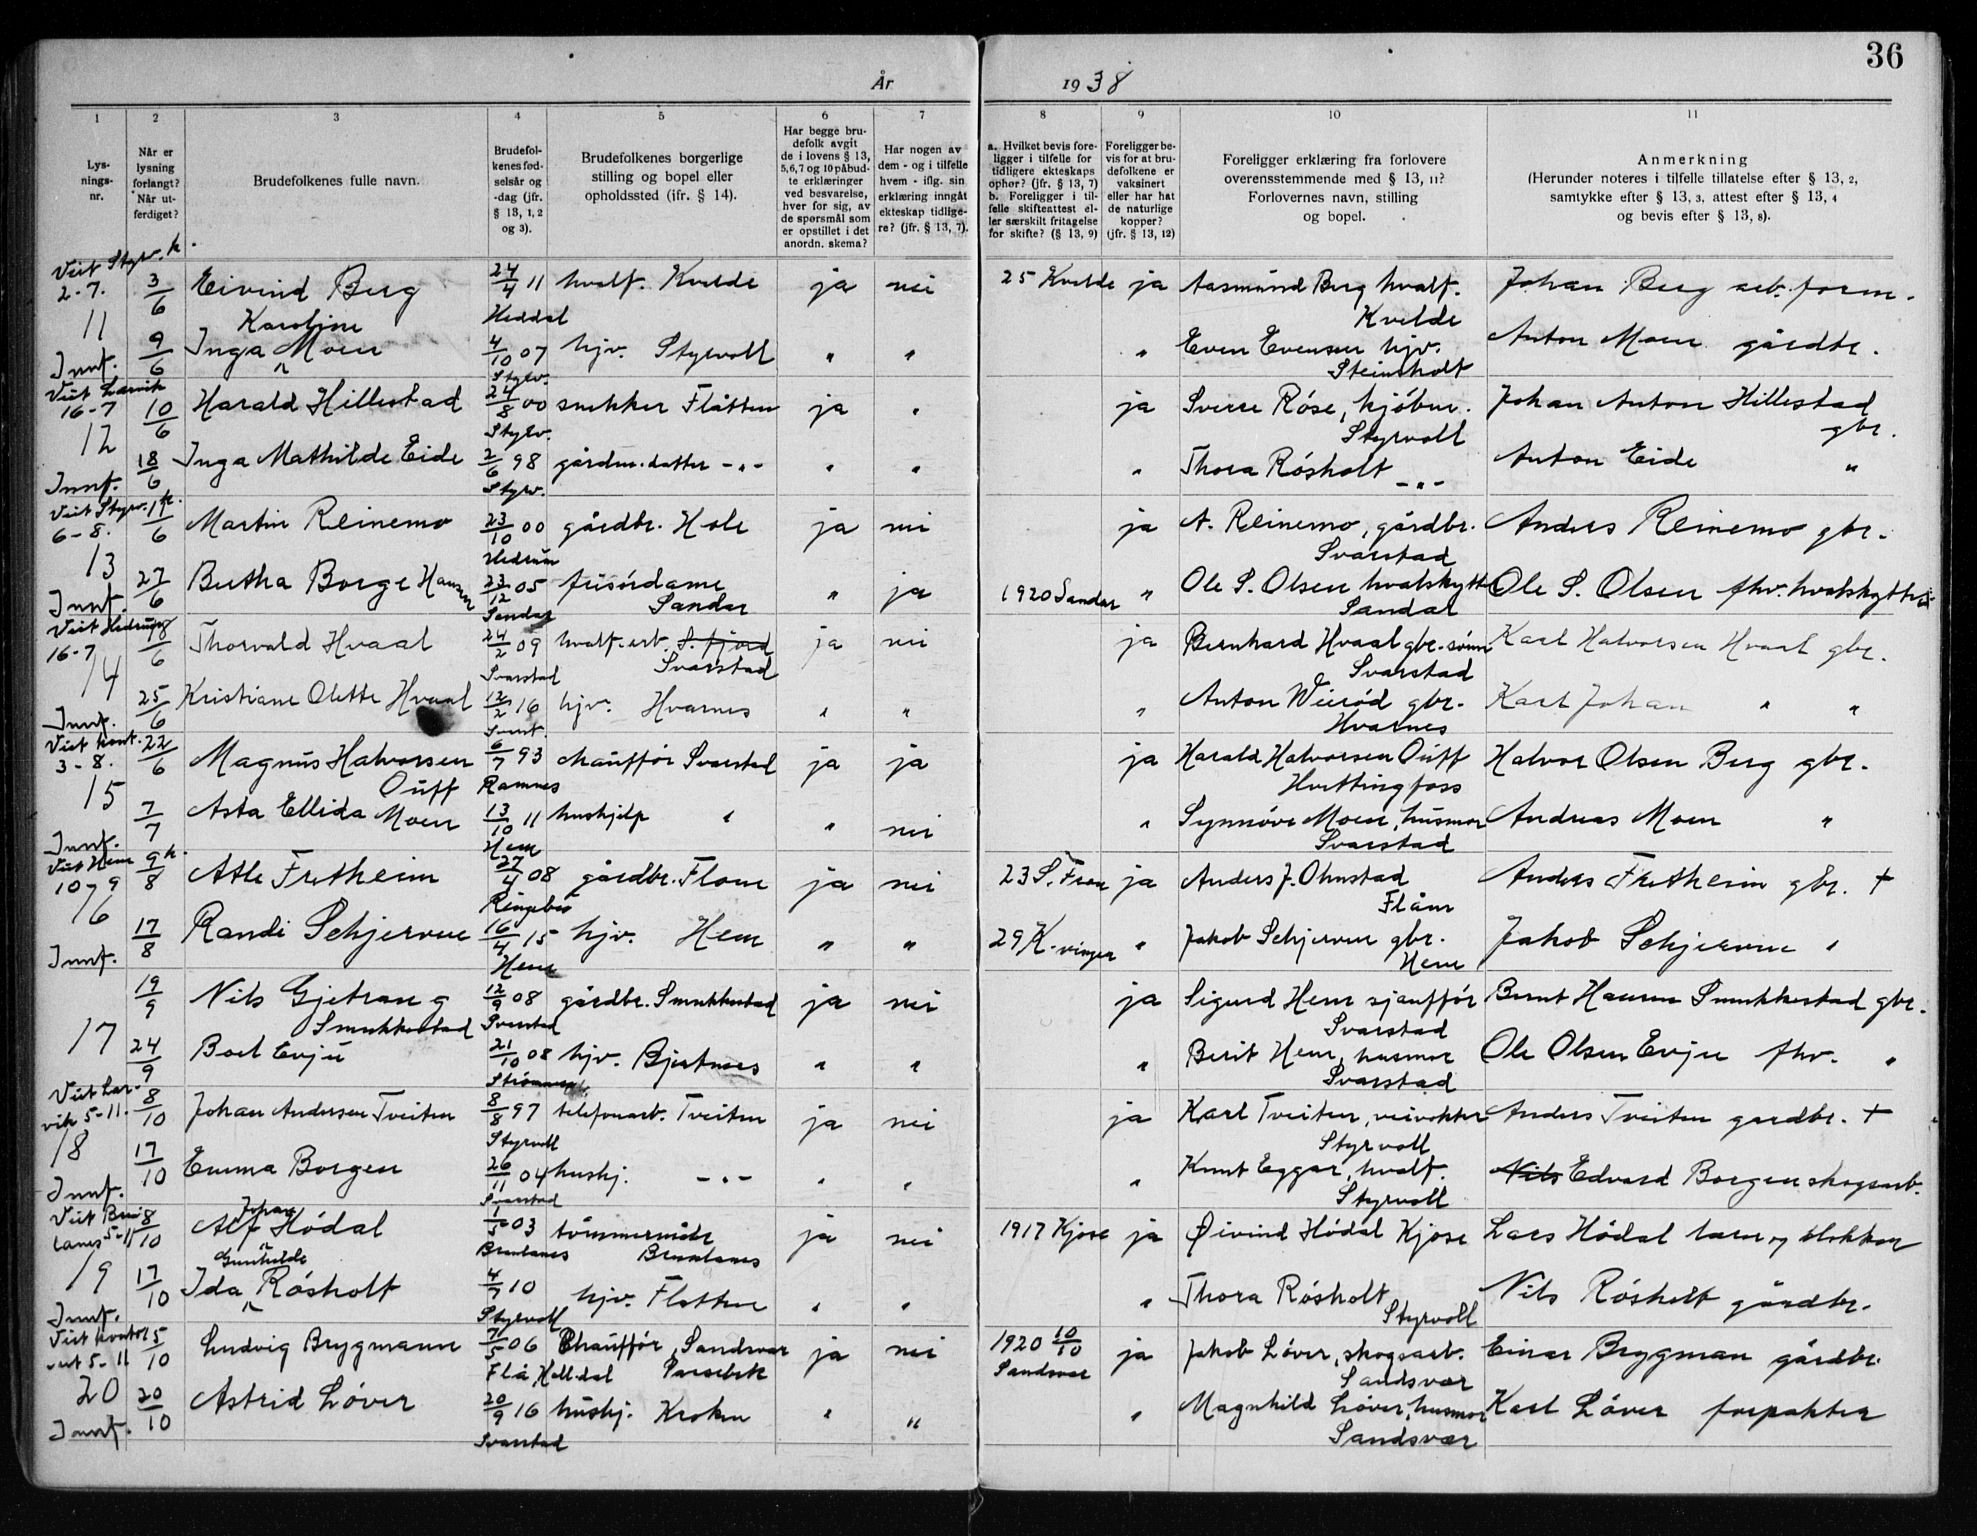 36
År 1938
1 2 3 4 5 6 7 8 9 10 11
Lys-
nings-
nr.
Når er
lysning
forlangt?
Når ut-
ferdiget?
Brudefolkenes fulle navn.
Brudefol-
kenes fød-
selsår og
-dag (jfr.
§ 13, 1, 2
og 3).
Brudefolkenes borgerlige
stilling og bopel eller
opholdssted (ifr. § 14).
Har begge bru-
defolk avgit
de i lovens § 13,
5, 6, 7 og 10 påbud-
te erklæringer
ved besvarelse,
hver for sig, av
de spørsmål som
er opstillet i det
anordn. skema?
Har nogen av
dem - og i tilfelle
hvem - iflg. sin
erklæring inngåt
ekteskap tidlige-
re? (jfr. § 13, 7).
a. Hvilket bevis fore-
ligger i tilfelle for
tidligere ekteskaps
ophør? (jfr. § 13, 7)
b. Foreligger i til-
felle skifteattest el-
ler særskilt fritagelse
for skifte? (§ 13, 9)
Foreligger be-
vis for at bru-
defolkene er
vaksinert
eller har hat
de naturlige
kopper?
(jfr. § 13, 12)
Foreligger erklæring fra forlovere
overensstemmende med § 13, 11?
Forlovernes navn, stilling
og bopel.
Anmerkning
(Herunder noteres i tilfelle tillatelse efter § 13, 2,
samtykke efter § 13, 3, attest efter § 13, 4
og bevis efter § 13, 8).
Viet Styrv. k.
2-7. 3/6 Eivind Berg 24/4 11 hvalf. Kvelde ja nei 25 Kvelde ja Aasmund Berg hvalf. Johan Berg arb. form.
11 Karoline Heddal Kvelde
Innf. 9/6 Inga Moen 4/10 07 hjv. Styrvoll " " " Even Evensen hjv. Anton Moen gårdbr.
Styrv. Steinsholt
Viet Larvik
16-7 10/6 Harald Hillestad 24/8 00 snekker Flåtten ja " ja Sverre Röse, kjöbm. Johan Anton Hillestad
12 Styrv. Styrvoll gbr.
Innf. 18/6 Inga Mathilde Eide 2/6 98 gårdm.datter -"- " " " Thora Rösholt -"- Anton Eide "
Styrv.
Viet Styrv. k.
6-8. 17/6 Martin Reinemo 23/10 00 gårdbr. Hole ja nei ja A. Reinemo, gårdbr. Anders Reinemo gbr.
13 Hedrum Svarstad
Innf. 27/6 Bertha Borge Hansen 23/12 05 frisördame " ja 1920 Sandar " Ole S. Olsen hvalskytter Ole S. Olsen fhv. hvalskytter
Sandar Sandar Sandar
Viet Hedrum
16-7 /6 Thorvald Hvaal 24/2 09 hvalf.arb. S.fjord ja nei ja Bernhard Hvaal gbr.sønn Karl Halvorsen Hvaal gbr.
14 Svarstad Svarstad Svarstad
Innf. 25/6 Kristiane Olette Hvaal 12/2 16 hjv. Hvarnes " " " Anton Weiröd gbr. Karl Johan " "
Hvarnes
Viet kont.
3-8. 22/6 Magnus Halvorsen 6/7 93 chauffør Svarstad ja ja ja Harald Halvorsen Ouff Halvor Olsen Berg gbr.
15 Ouff Ramnes Hvittingfoss
Innf. 7/7 Asta Ellida Moen 13/10 11 hushjelp " " nei " Synnöve Moen, husmor Andreas Moen "
Hem Svarstad
Viet Hem k.
10-9 9/8 Atle Fretheim 27/4 08 gårdbr. Flom ja nei 23 S. Fron ja Anders J. Ohnstad Anders Fretheim gbr. +
16 Ringebo Flåm
Innf. 17/8 Randi Schjerven 16/4 15 hjv. Hem " " 29 K-vinger " Jakob Schjerven gbr. Jakob Schjerven "
Hem Hem
19/9 Nils Gjetrang 12/9 08 gårdbr. Smukkestad ja nei ja Sigurd Hem sjauffør Bernt Hansen Smukkestad gbr.
17 Smukkestad Svarstad Svarstad
24/9 Boel Evju 21/10 08 hjv. Bjertnes " " " Berit Hem, husmor Ole Olsen Evju fhv. "
Svarstad
Viet Lar-
vik 5-11. 8/10 Johan Andersen Tveiten 8/8 97 telefonarb. Tveiten ja nei ja Karl Tveiten, veivokter Anders Tveiten gardbr. +
18 Styrvoll Styrvoll
Innf. 17/10 Emma Borgen 26/11 04 hushj. -"- " " " Knut Eggar, hvalf. Nils Edvard Borgen skogsarb.
Svarstad Styrvoll
Viet Brun-
lanes 5-11 8/10 Alf Johan Hödal 03 tömmermåler ja nei 1917 Kjose ja Øivind Hödal Kjose Lars Hödal lærer og klokker
19 Gunhilde Brunlanes Brunlanes
Innf. 17/10 Ida Rösholt 4/7 10 hjv. Flatten " " " Thora Rösholt Nils Rösholt gårdbr.
Styrvoll Styrvoll
Viet kontor
5-11 15/10 Ludvig Brygmann 7/5 06 Chauffør, Sandsvær ja nei 1920 10/10 ja Jakob Löver, skogsarb. Einar Brygman gårdbr.
20 Flå, Hall.dal Passebek Sandsvær Sandsvær
Innf. 20/10 Astrid Löver 20/9 16 hushj. Kroken " " " Magnhild Löver, husmor Karl Löver forpakter
Svarstad Sandsvær